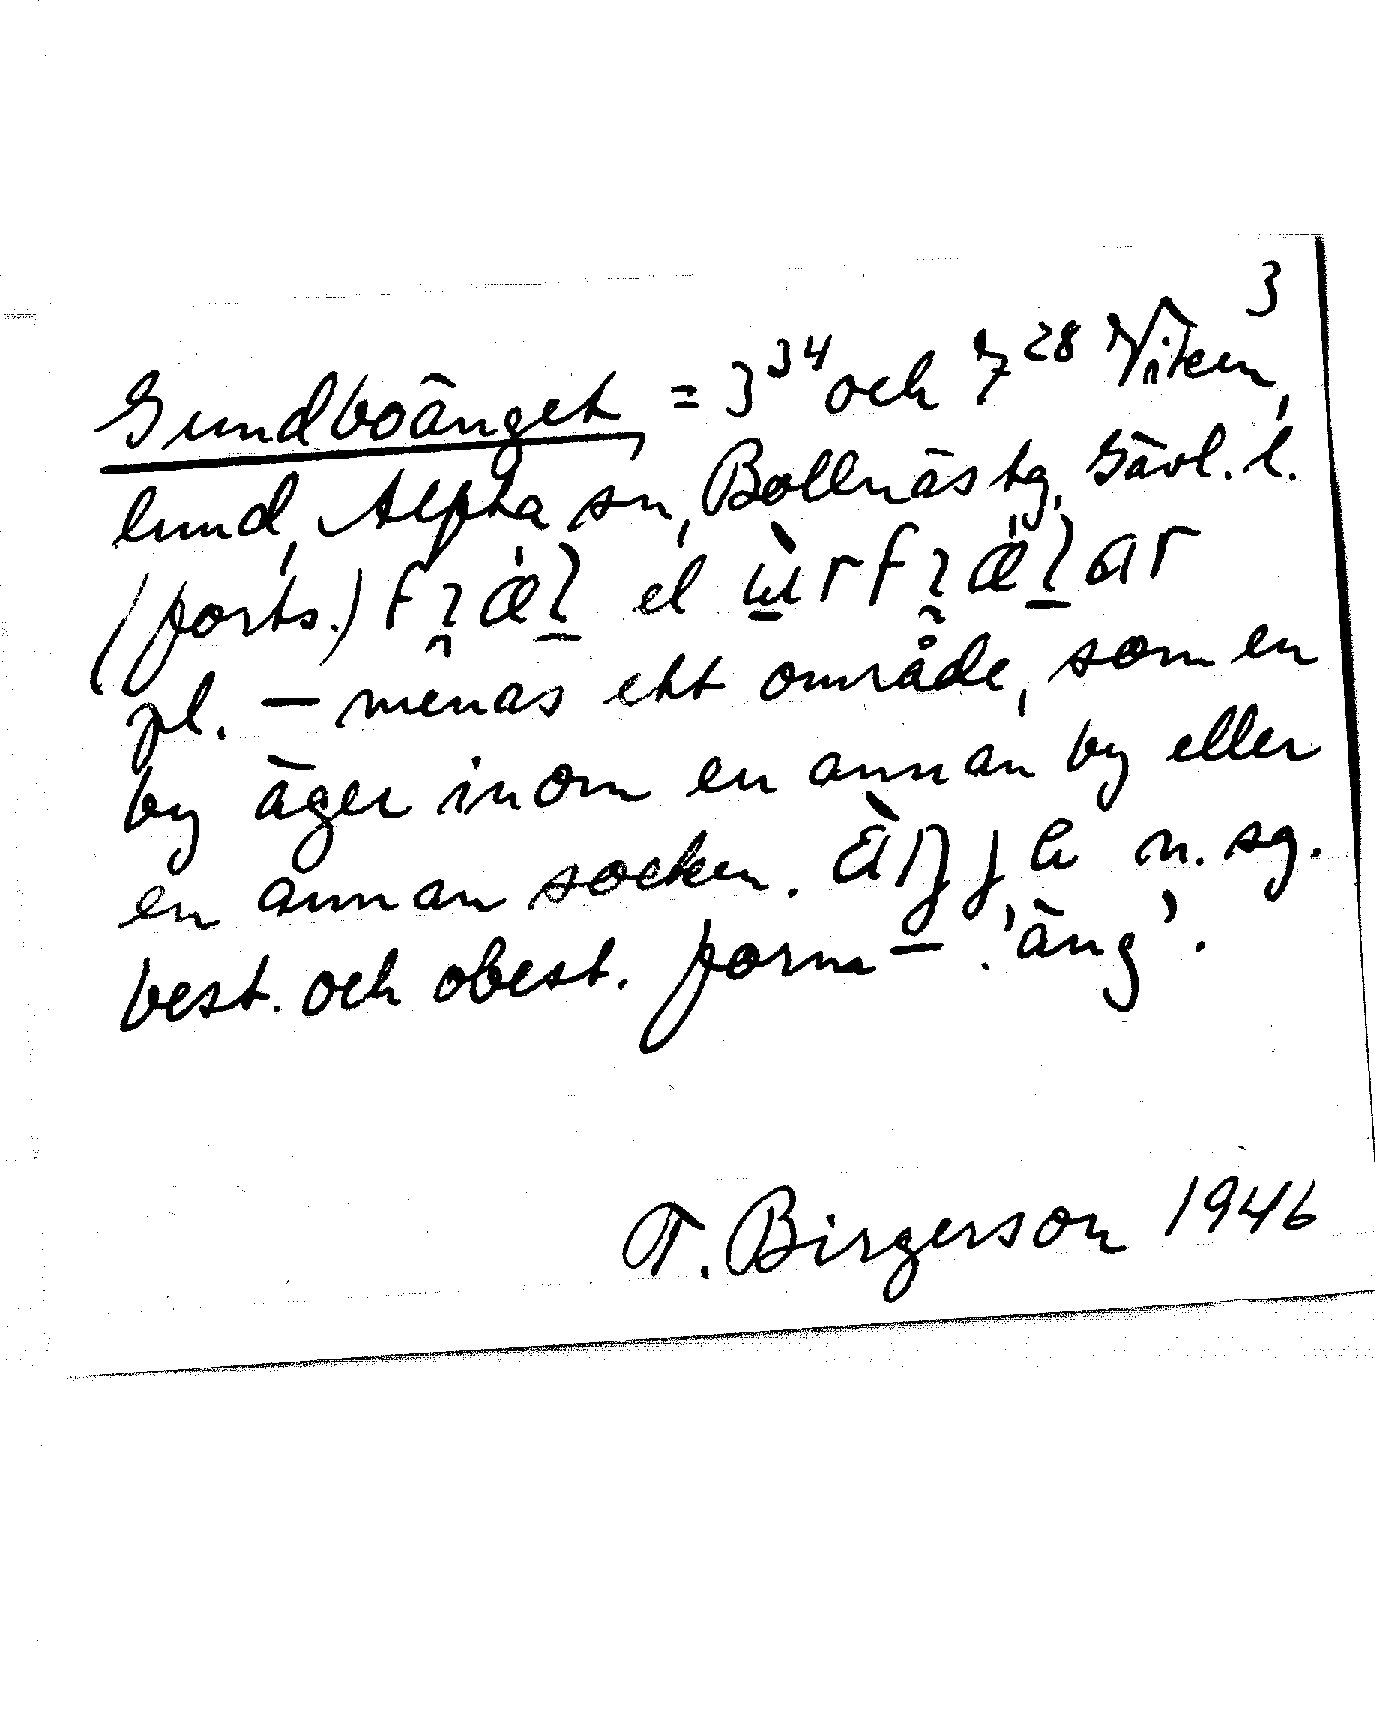 3
Gundboänget = 3³⁴ och 7²⁸ Viken,
lund, Alfta sn, Bollnäs tg, Gävl. l.
(forts.) el
pl. — menas ett område, som en
by äger inom en annan by eller
en annan socken. n. sg.
best. och obest. form — 'äng'.
T. Birgerson 1946